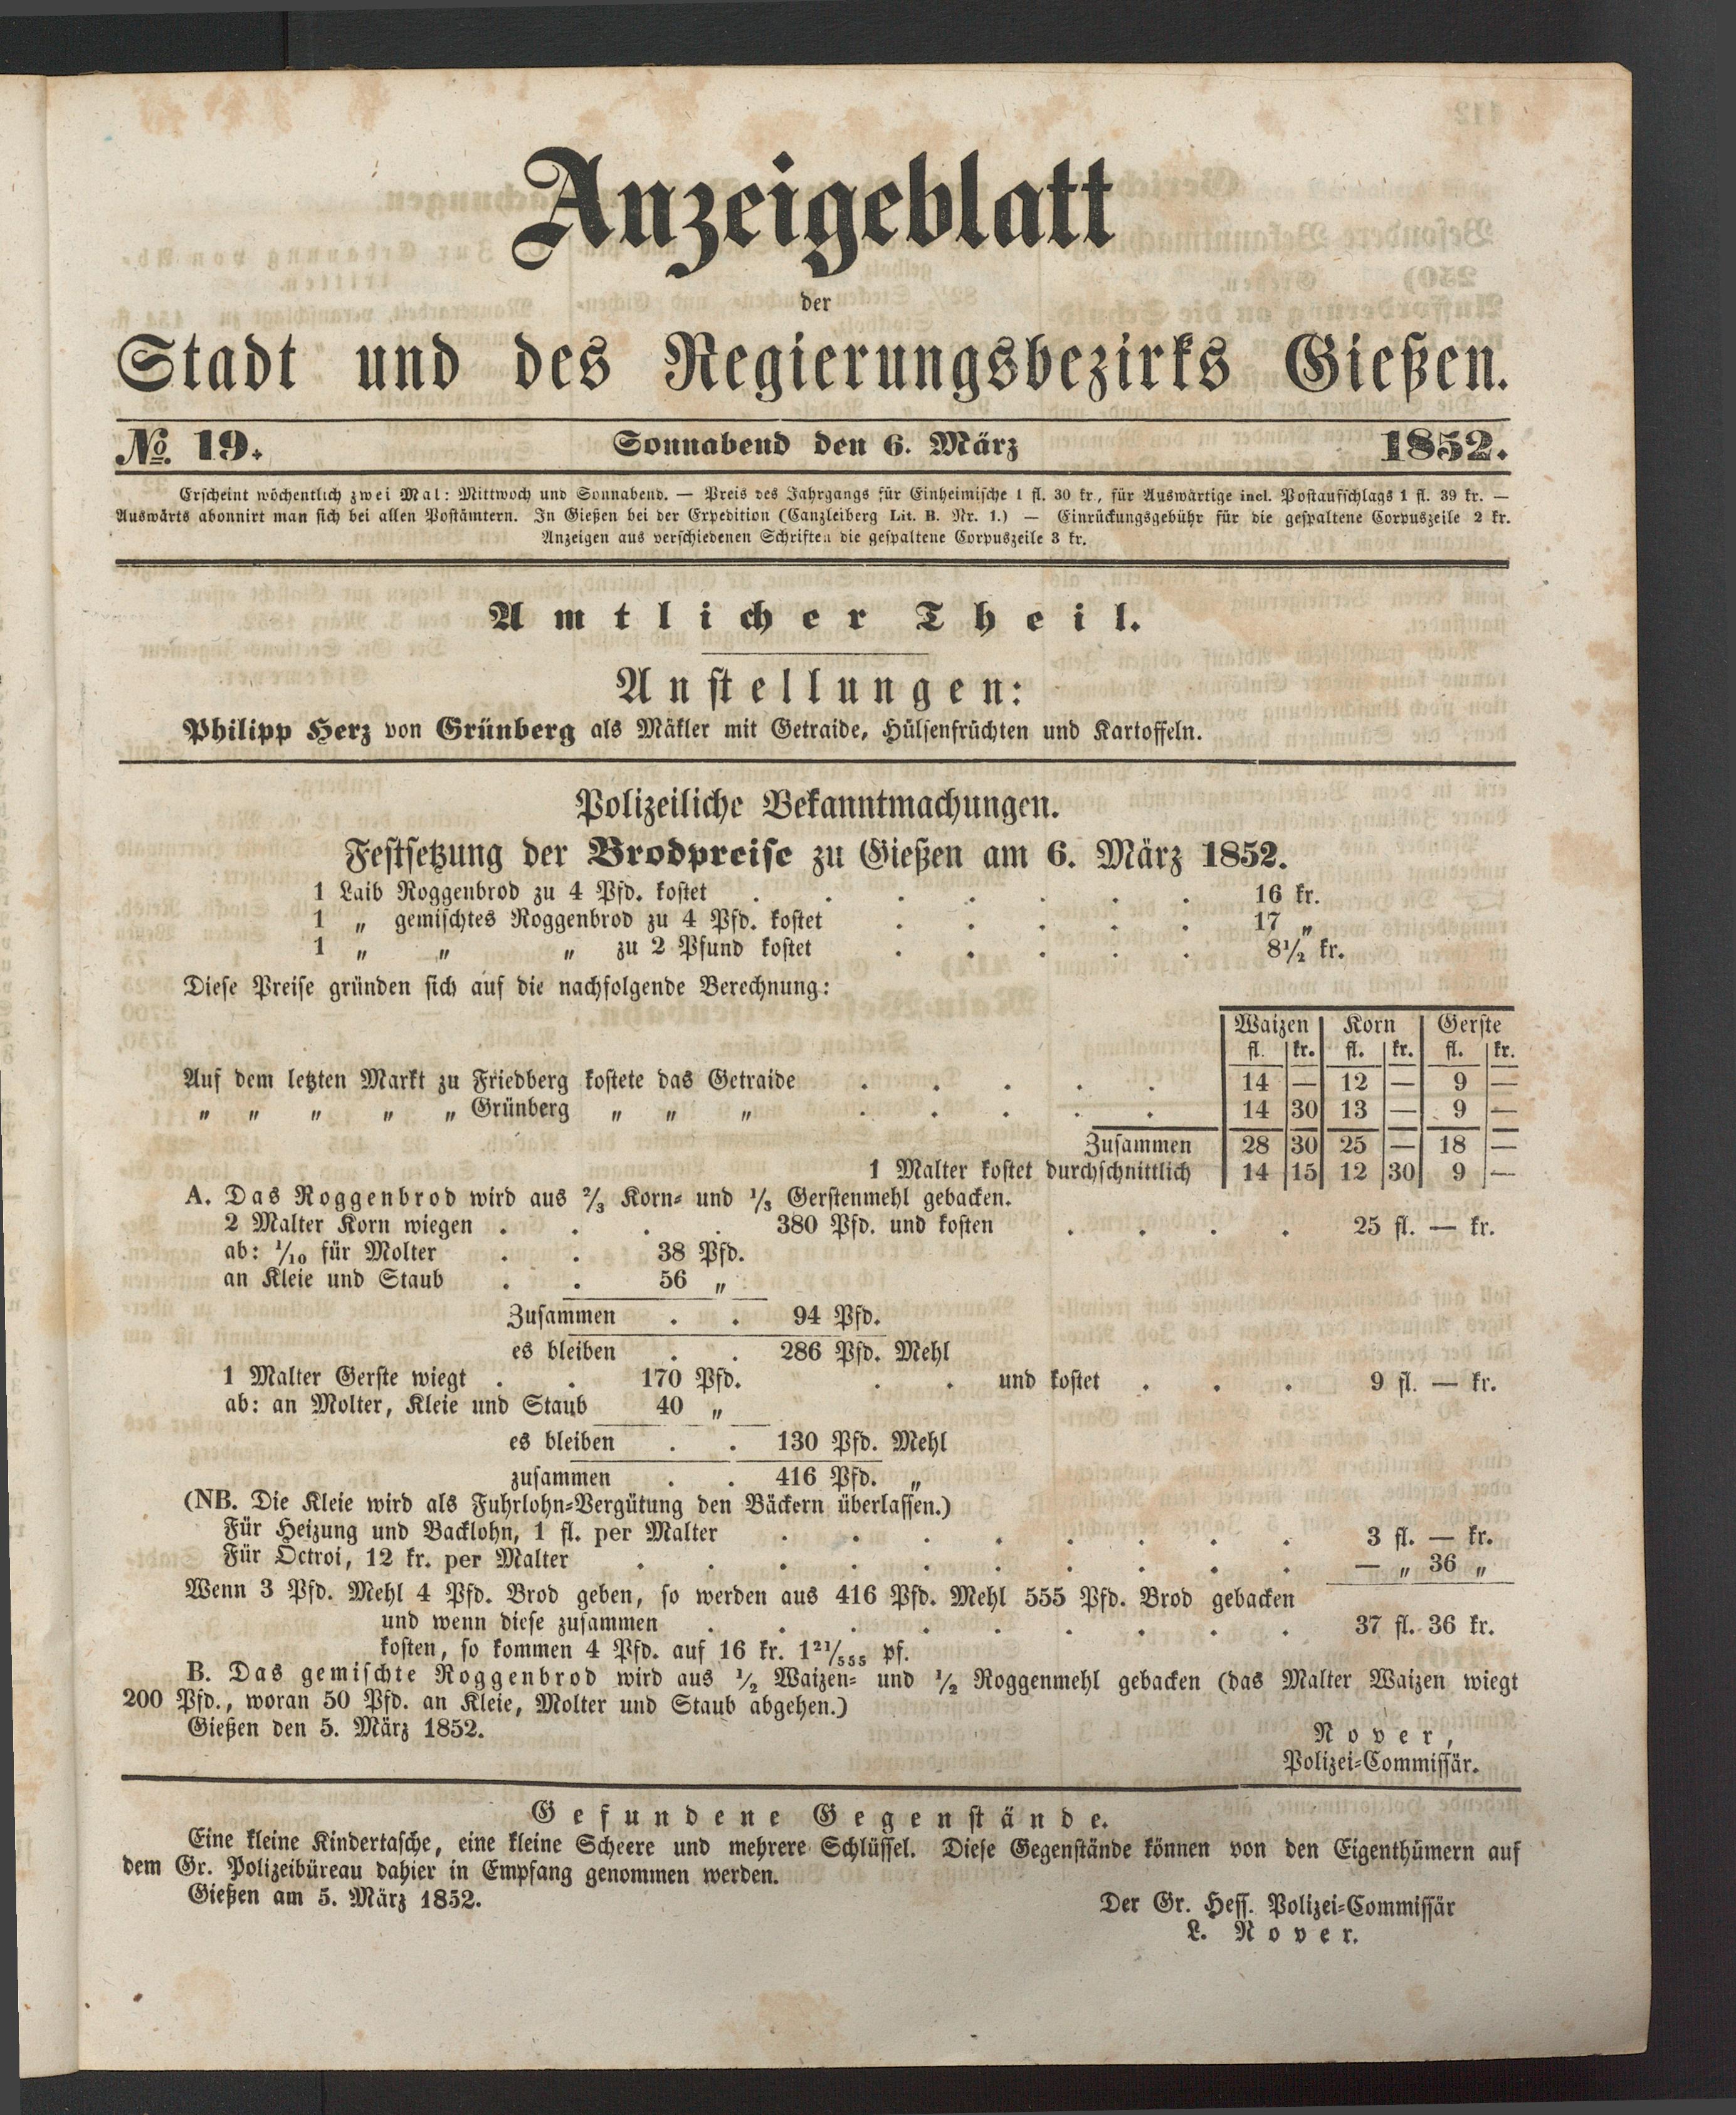 Anzeigeblatt
der
Stadt und des Regierungsbezirks Gießen.
No. 19. Sonnabend den 6. März 1852.
Erscheint wöchentlich zwei Mal: Mittwoch und Sonnabend. — Preis des Jahrgangs für Einheimische 1 fl. 30 kr., für Auswärtige incl. Postaufschlags 1 fl. 39 kr. —
Auswärts abonnirt man sich bei allen Postämtern. In Gießen bei der Expedition (Canzleiberg Lit. B. Nr. 1.) — Einrückungsgebühr für die gespaltene Corpuszeile 2 kr.
Anzeigen aus verschiedenen Schriften die gespaltene Corpuszeile 3 kr.
Amtlicher Theil.
Anstellungen:
Philipp Herz von Grünberg als Mäkler mit Getraide, Hülsenfrüchten und Kartoffeln.
Polizeiliche Bekanntmachungen.
Festsetzung der Brodpreise zu Gießen am 6. März 1852.
1 Laib Roggenbrod zu 4 Pfd. kostet . . . . . . . 16 kr.
1 „ gemischtes Roggenbrod zu 4 Pfd. kostet . . . . . 17 „
1 „ „ „ zu 2 Pfund kostet . . . . . 8½ kr.
Diese Preise gründen sich auf die nachfolgende Berechnung:
Waizen Korn Gerste
fl. kr. fl. kr. fl. kr.
Auf dem letzten Markt zu Friedberg kostete das Getraide . . . . . 14 — 12 — 9 —
„ „ „ „ „ Grünberg „ „ „ . . . . . 14 30 13 — 9 —
Zusammen 28 30 25 — 18 —
1 Malter kostet durchschnittlich 14 15 12 30 9 —
A. Das Roggenbrod wird aus ⅔ Korn- und ⅓ Gerstenmehl gebacken.
2 Malter Korn wiegen . . . . 380 Pfd. und kosten . . . . 25 fl. — kr.
ab: 1/10 für Molter . . 38 Pfd.
an Kleie und Staub . . 56 „
Zusammen . . 94 Pfd.
es bleiben . . 286 Pfd. Mehl
1 Malter Gerste wiegt . . 170 Pfd. . . und kostet . . . 9 fl. — kr.
ab: an Molter, Kleie und Staub 40 „
es bleiben . . 130 Pfd. Mehl
zusammen . . 416 Pfd. „
(NB. Die Kleie wird als Fuhrlohn-Vergütung den Bäckern überlassen.)
Für Heizung und Backlohn, 1 fl. per Malter . . . . . . . . 3 fl. — kr.
Für Octroi, 12 kr. per Malter . . . . . . . . . . — „ 36 „
Wenn 3 Pfd. Mehl 4 Pfd. Brod geben, so werden aus 416 Pfd. Mehl 555 Pfd. Brod gebacken
und wenn diese zusammen . . . . . . . . . 37 fl. 36 kr.
kosten, so kommen 4 Pfd. auf 16 kr. 1 21/555 pf.
B. Das gemischte Roggenbrod wird aus ½ Waizen- und ½ Roggenmehl gebacken (das Malter Waizen wiegt
200 Pfd., woran 50 Pfd. an Kleie, Molter und Staub abgehen.)
Gießen den 5. März 1852.
Nover,
Polizei-Commissär.
Gefundene Gegenstände.
Eine kleine Kindertasche, eine kleine Scheere und mehrere Schlüssel. Diese Gegenstände können von den Eigenthümern auf
dem Gr. Polizeibüreau dahier in Empfang genommen werden.
Gießen am 5. März 1852.
Der Gr. Hess. Polizei-Commissär
L. Nover.